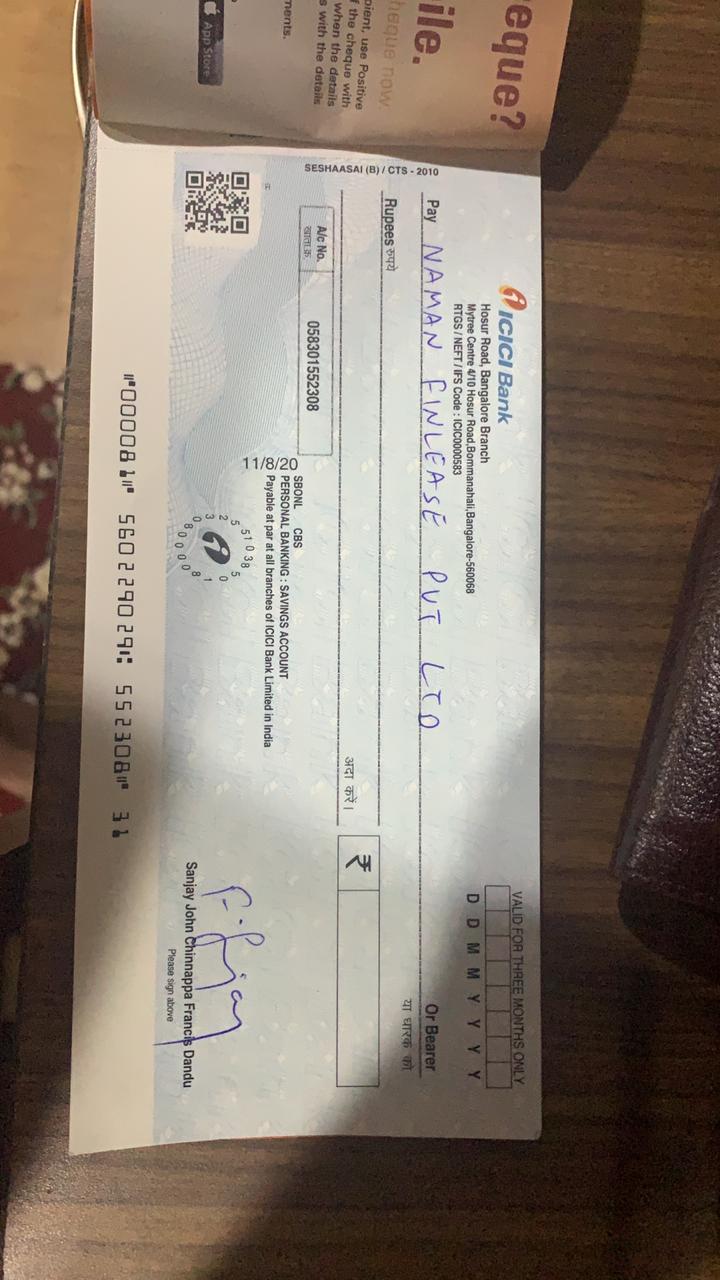 eque?
ile.
heque now.
pient, use Positive
f the cheque with
when the details
s with the details
ments.
App Store
VALID FOR THREE MONTHS ONLY
D D M M Y Y Y Y
ICICI Bank
Hosur Road, Bangalore Branch
Mytree Centre 4/10 Hosur Road,Bommanahali,Bangalore-560068
RTGS / NEFT / IFS Code : ICIC0000583
Pay NAMAN FINLEASE PVT LTD Or Bearer
या धारक को
Rupees रुपये
अदा करें।
₹
A/c No.
खाता क्र.
058301552308
SESHAASAI (B) / CTS - 2010
11/8/20
SBONL CBS
PERSONAL BANKING : SAVINGS ACCOUNT
Payable at par at all branches of ICICI Bank Limited in India
Sanjay John Chinnappa Francis Dandu
Please sign above
⑈000081⑈ 560229029⑆ 552308⑈ 31